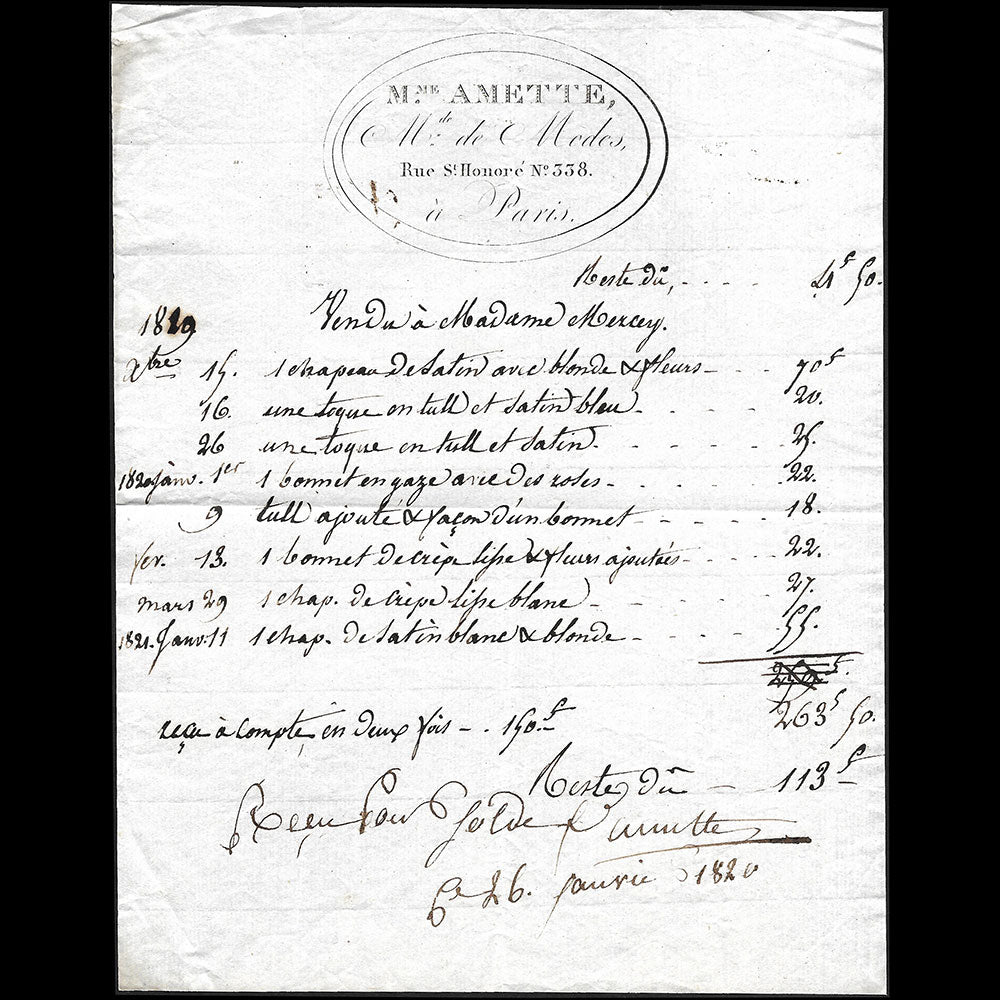 M.ME AMETTE,
M.de de Modes,
Rue St. Honoré No. 338.
à Paris.
Reste dû, - - - - 4f 50.
1819 Vendu à Madame Mercey.
Xbre 15. 1 chapeau de satin avec blonde & fleurs - - - 70f
16. une toque en tull et satin bleu - - - - 20.
26 une toque en tull et satin - - - - 25.
1820 janv. 1er 1 bonnet en gaze avec des roses - - - - 22.
9 tull ajouté & façon d'un bonnet - - - - 18.
fer. 13. 1 bonnet de crèpe lisse & fleurs ajoutées - - - 22.
mars 29 1 chap. de crèpe lisse blanc - - - - 27.
1821. Janv. 11 1 chap. de satin blanc & blonde - - - - 55.
263f 50.
reçu à compte, en deux fois - . 150.f
Reste dû - 113f
Reçu pour Solde
Ce 26. janvie 1820